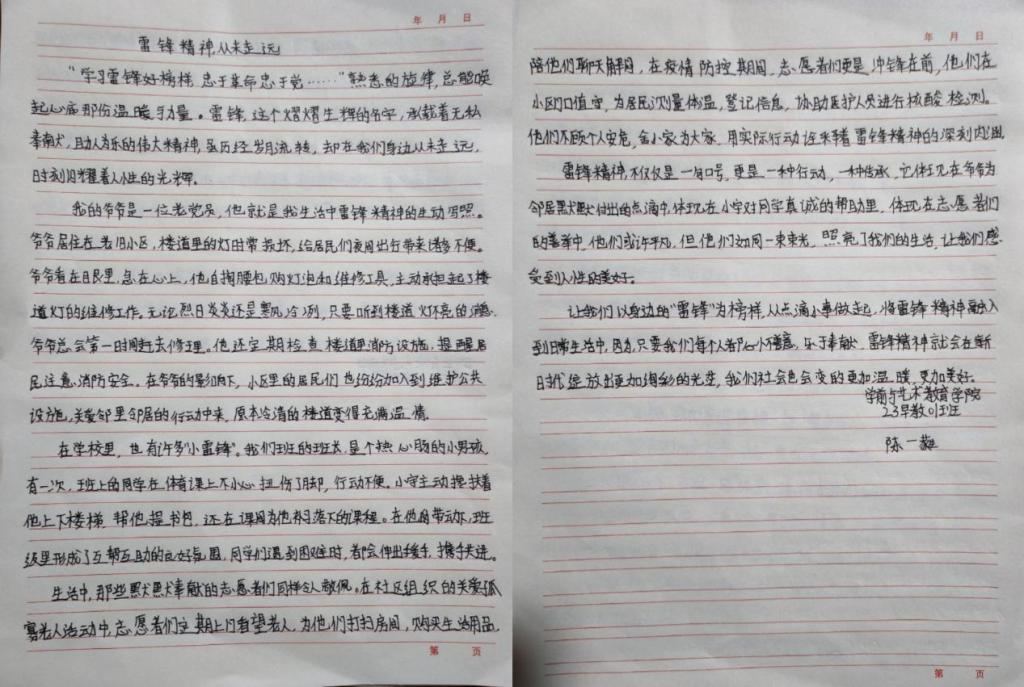 年 月 日
雷锋精神,从未走远
"学习雷锋好榜样 忠于革命忠于党……"熟悉的旋律,总能唤
起心底那份温暖与力量。雷锋,这个熠熠生辉的名字,承载着无私
奉献,助人为乐的伟大精神,虽历经岁月流转,却在我们身边从未走远,
时刻闪耀着人性的光辉。
我的爷爷是一位老党员,他就是我生活中雷锋精神的生动写照。
爷爷居住在老旧小区,楼道里的灯时常损坏,给居民们夜间出行带来诸多不便。
爷爷看在眼里,急在心上,他自掏腰包购灯泡和维修工具,主动承担起了楼
道灯的维修工作。无论烈日炎炎还是寒风冷冽,只要听到楼道灯不亮的消息
爷爷总会第一时间赶去修理。他还定期检查楼道里消防设施,提醒居
民注意消防安全。在爷爷的影响下,小区里的居民们也纷纷加入到维护公共
设施,关爱邻里邻居的行动中来,原本冷清的楼道变得充满温情。
在学校里,也有许多"小雷锋"。我们班的班长,是个热心肠的小男孩,
有一次,班上的同学在体育课上不小心扭伤了脚,行动不便。小宇主动搀扶着
他上下楼梯,帮他提书包,还在课间为他补落下的课程。在他的带动下,班
级里形成了互帮互助的良好氛围,同学们遇到困难时,都会伸出援手,携手共进。
生活中,那些默默奉献的志愿者们同样令人敬佩。在社区组织的关爱孤
寡老人活动中,志愿者们定期上门看望老人,为他们打扫房间,购买生活用品,
第 页
年 月 日
陪他们聊天解闷,在疫情防控期间,志愿者们更是冲锋在前,他们在
小区门口值守,为居民测量体温,登记信息,协助医护人员进行核酸检测。
他们不顾个人安危,舍小家为大家,用实际行动诠释着雷锋精神的深刻内涵
雷锋精神,不仅仅是一句口号,更是一种行动,一种传承,它体现在爷爷为
邻居默默付出的点滴中,体现在小宇对同学真诚的帮助里,体现在志愿者们
的善举中,他们或许平凡,但他们如同一束束光,照亮了我们的生活,让我们感
受到人性的美好。
让我们以身边的"雷锋"为榜样,从点滴小事做起,将雷锋精神融入
到日常生活中,因为,只要我们每个人都心怀善意,乐于奉献,雷锋精神就会在新
时代绽放出更加绚彩的光芒,我们社会也会变的更加温暖,更加美好。
学前与艺术教育学院
23早教01班
陈一
第 页